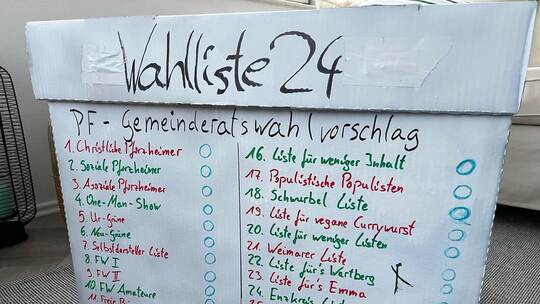 Wahlliste 24
PF - Gemeinderatswahlvorschlag
1. Christliche Pforzheimer
2. Soziale Pforzheimer
3. Asoziale Pforzheimer
4. One-Man-Show
5. Ur-Grüne
6. Neu-Grüne
7. Selbstdarsteller Liste
8. FW I
9. FW II
10. FW Amateure
11. Freie
16. Liste für weniger Inhalt
17. Populistische Populisten
18. Schwurbel Liste
19. Liste für vegane Currywurst
20. Liste für weniger Listen
21. Weimarer Liste
22. Liste für's Wartberg
23. Liste für's Emma
24. Enzkreis Liste